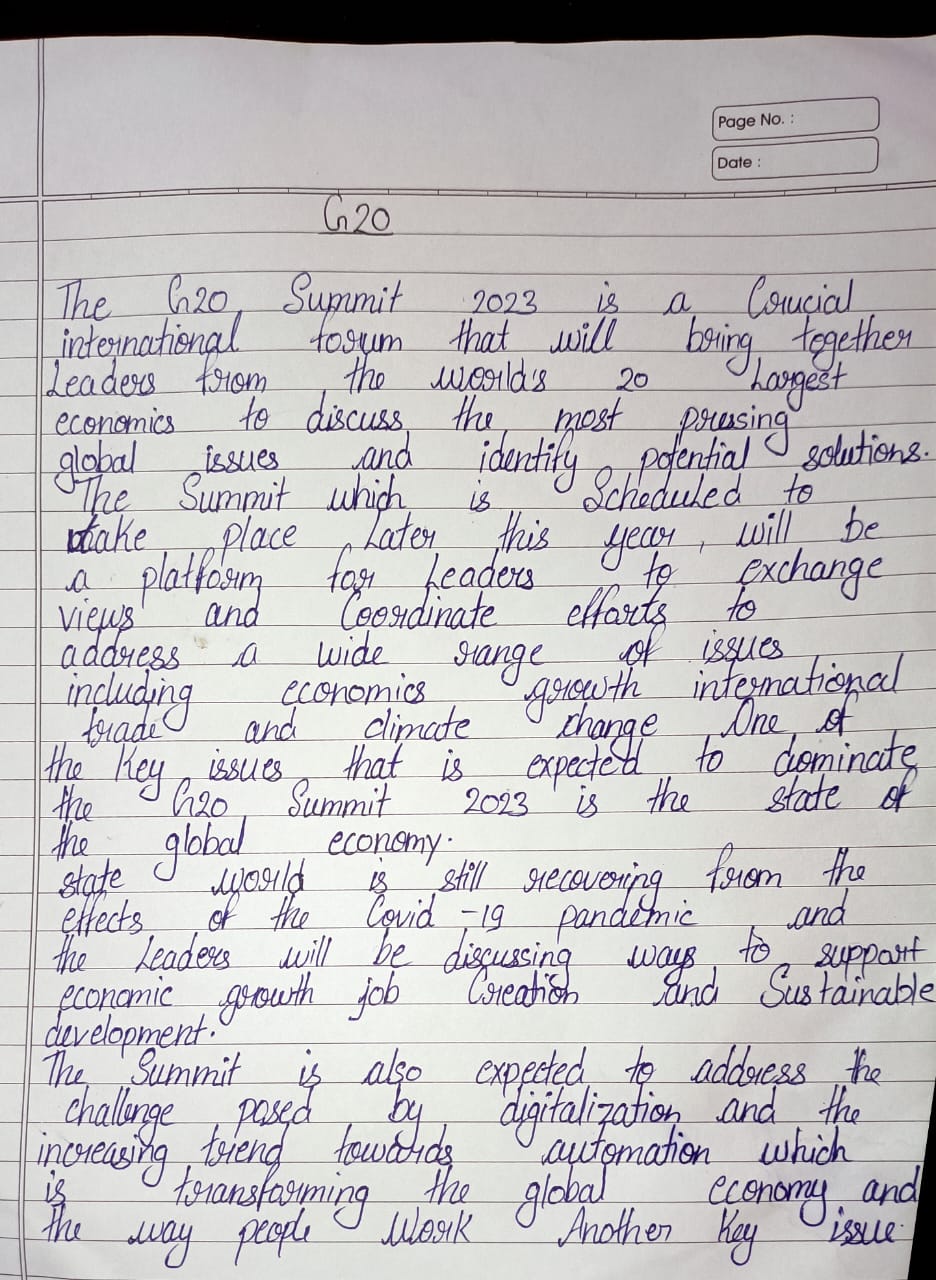 Page No. :
Date :
G20
The G20 Summit 2023 is a Crucial
international forum that will bring together
Leaders from the world's 20 Largest
economics to discuss the most pressing
global issues and identify potential solutions.
The Summit which is Scheduled to
take place Later this year, will be
a platform for Leaders to exchange
views and Coordinate efforts to
address a wide range of issues
including economics growth international
trade and climate change One of
the Key issues that is expected to dominate
the G20 Summit 2023 is the state of
the global economy.
state world is still recovering from the
effects of the Covid-19 pandemic and
the Leaders will be discussing ways to support
economic growth job Creation and Sustainable
development.
The Summit is also expected to address the
challenge posed by digitalization and the
increasing trend towards automation which
is transforming the global economy and
the way people Work Another Key issue.